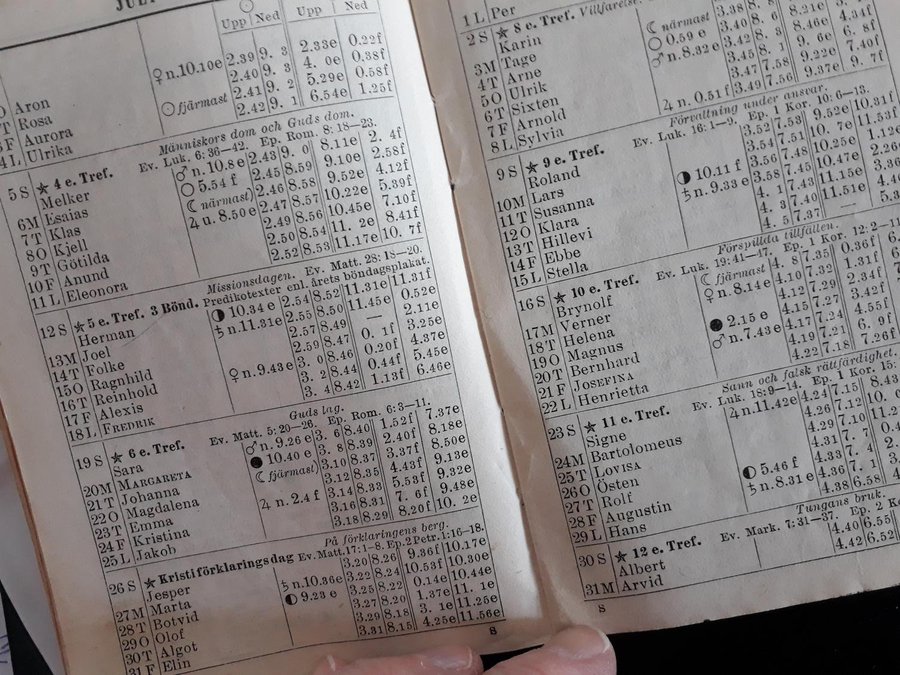 JULI
Upp Ned Upp Ned
Aron ♀ n. 10.10 e 2.39 9. 3 2.33e 0.22f
Rosa 2.40 9. 3 4. 0e 0.38f
Aurora 2.41 9. 2 5.29e 0.58f
4 L Ulrika fjärmast 2.42 9. 1 6.54e 1.25f
Människors dom och Guds dom.
5 S ★ 4 e. Tref. Ev. Luk. 6: 36—42. Ep. Rom. 8: 18—23.
Melker ♂ n. 10.8 e 2.43 9. 0 8.11e 2. 4f
6M Esaias 5.54 f 2.45 8.59 9.10e 2.58f
7 T Klas ☾ närmast 2.46 8.58 9.52e 4.12f
8 O Kjell ♃ u. 8.50 e 2.47 8.57 10.22e 5.39f
9 T Götilda 2.49 8.56 10.45e 7.10f
10 F Anund 2.50 8.54 11. 2e 8.41f
11 L Eleonora 2.52 8.53 11.17e 10. 7f
Missionsdagen. Ev. Matt. 28: 18—20.
12 S ★ 5 e. Tref. 3 Bönd. Predikotexter enl. årets böndagsplakat.
Herman ◑ 10.34 e 2.54 8.52 11.31e 11.31f
13M Joel ♄ n. 11.31 e 2.55 8.50 11.45e 0.52e
14 T Folke 2.57 8.49 — 2.11e
15 O Ragnhild 8.47 0. 1f 3.25e
16 T Reinhold ♀ n. 9.43 e 3. 0 8.46 0.20f 4.37e
17 F Alexis 3. 2 8.44 0.44f 5.46e
18 L Fredrik 3. 4 8.42 1.13f 6.46e
Guds lag.
19 S ★ 6 e. Tref. Ev. Matt. 5: 20—26. Ep. Rom. 6: 3—11.
Sara ♂ n. 9.26 e 3. 6 8.40 1.52f 7.37e
20M Margareta ● 10.40 e 3. 8 8.39 2.40f 8.18e
21 T Johanna ☾ fjärmast 3.10 8.37 3.37f 8.50e
22 O Magdalena 3.12 8.35 4.43f 9.13e
23 T Emma ♃ n. 2.4 f 3.14 8.33 5.53f 9.32e
24 F Kristina 3.16 8.31 7. 6f 9.48e
25 L Jakob 3.18 8.29 8.20f 10. 2e
På förklaringens berg.
26 S ★ Kristi förklaringsdag Ev. Matt. 17: 1—8. Ep. 2 Petr. 1: 16—18.
Jesper ♄ n. 10.36 e 3.20 8.26 9.36f 10.17e
27M Marta ◐ 9.23 e 3.22 8.24 10.53f 10.30e
28 T Botvid 3.25 8.22 0.14e 10.44e
29 O Olof 3.27 8.20 1.37e 11. 1e
30 T Algot 3.29 8.18 3. 1e 11.25e
31 F Elin 3.31 8.15 4.25e 11.56e
8
1 L Per
2 S ★ 8 e. Tref. Villfarelse.
Karin ☾ närmast
3M Tage 0.59 e
4 T Arne ♂ n. 8.32 e
5 O Ulrik
6 T Sixten
7 F Arnold ♃ n. 0.51 f
8 L Sylvia 3.49 7.56 9.37e 9. 7f
Förvaltning under ansvar.
9 S ★ 9 e. Tref. Ev. Luk. 16: 1—9. Ep. 1 Kor. 10: 6—13.
Roland 3.52 7.53 9.52e 10.31f
10M Lars ◑ 10.11 f 7.51 10. 7e 11.53f
11 T Susanna ♄ n. 9.33 e 3.56 7.48 10.25e
12 O Klara 3.58 7.45 10.47e
13 T Hillevi 4. 1 7.43 11.15e
14 F Ebbe 4. 3 7.40 11.51e
15 L Stella 4. 5 7.37 —
Förspillda tillfällen.
16 S ★ 10 e. Tref. Ev. Luk. 19: 41—47. Ep. 1 Kor. 12: 2—11
Brynolf ☾ fjärmast 4. 8 7.35 0.36f
17M Verner ♀ n. 8.14 e 4.10 7.32 1.31f
18 T Helena 4.12 7.29 2.34f
19 O Magnus ● 2.15 e 4.15 7.27 3.42f
20 T Bernhard ♂ n. 7.43 e 4.17 7.24 4.55f
21 F Josefina 4.19 7.21 6. 9f
22 L Henrietta 4.22 7.18 7.26f
Sann och falsk rättfärdighet.
23 S ★ 11 e. Tref. Ev. Luk. 18: 9—14. Ep. 1 Kor. 15:
Signe ♃ n. 11.42 e 4.24 7.15 8.43
24M Bartolomeus 4.26 7.12
25 T Lovisa 4.29 7.10
26 O Östen ◐ 5.46 f 4.31 7. 7
27 T Rolf ♄ n. 8.31 e 4.33 7. 4
28 F Augustin 4.36 7. 1
29 L Hans 4.38 6.58
Tungans bruk.
30 S ★ 12 e. Tref. Ev. Mark. 7: 31—37. Ep. 2
Albert 4.40 6.55
31M Arvid 4.42 6.52
8